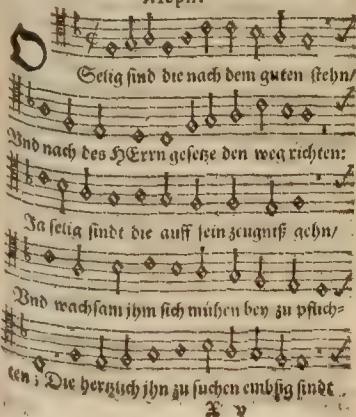 Aleph.
O
Selig sind die nach dem guten stehn/
Vnd nach des HErrn gesetze den weg richten:
Ja selig sindt die auff sein zeugntß gehn/
Vnd wachsam jhm sich mühen bey zu pflich-
ten; Die hertzlich jhn zu suchen embsig sindt
X v